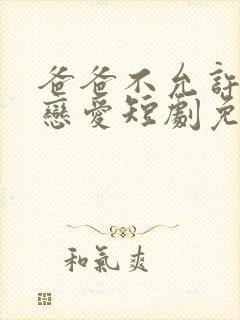 爸爸不允許
戀愛短劇免
和氣爽